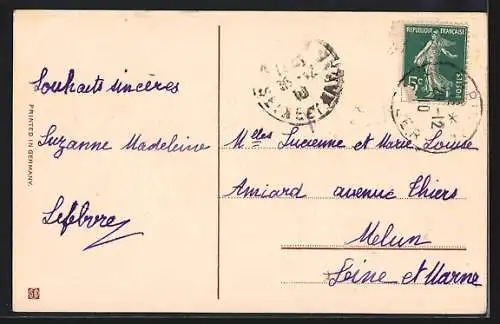 Souhaits sincères
Suzanne Madeleine
Lefebvre
PRINTED IN GERMANY.
REPUBLIQUE FRANÇAISE
5c
POSTES
Melles Lucienne et Marie Louise
Amiard avenue Thiers
Melun
Seine et Marne